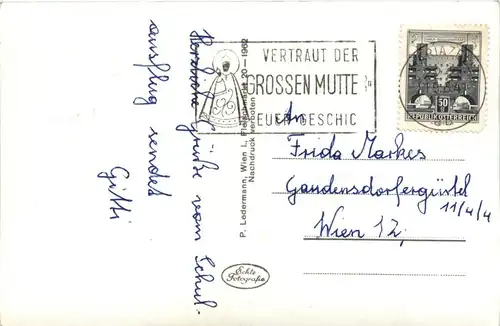 Herzliche Grüße vom Schul-
ausflug sendet
Gitti
P. Ledermann, Wien I, Fleischmarkt 20 — 1962
Nachdruck verboten
VERTRAUT DER
GROSSEN MUTTE
EUER GESCHIC
50
REPUBLIK ÖSTERREICH
An
Frida Markes
Gaudensdorfergürtel
11/4/4
Wien 12,
Echte
Fotografie